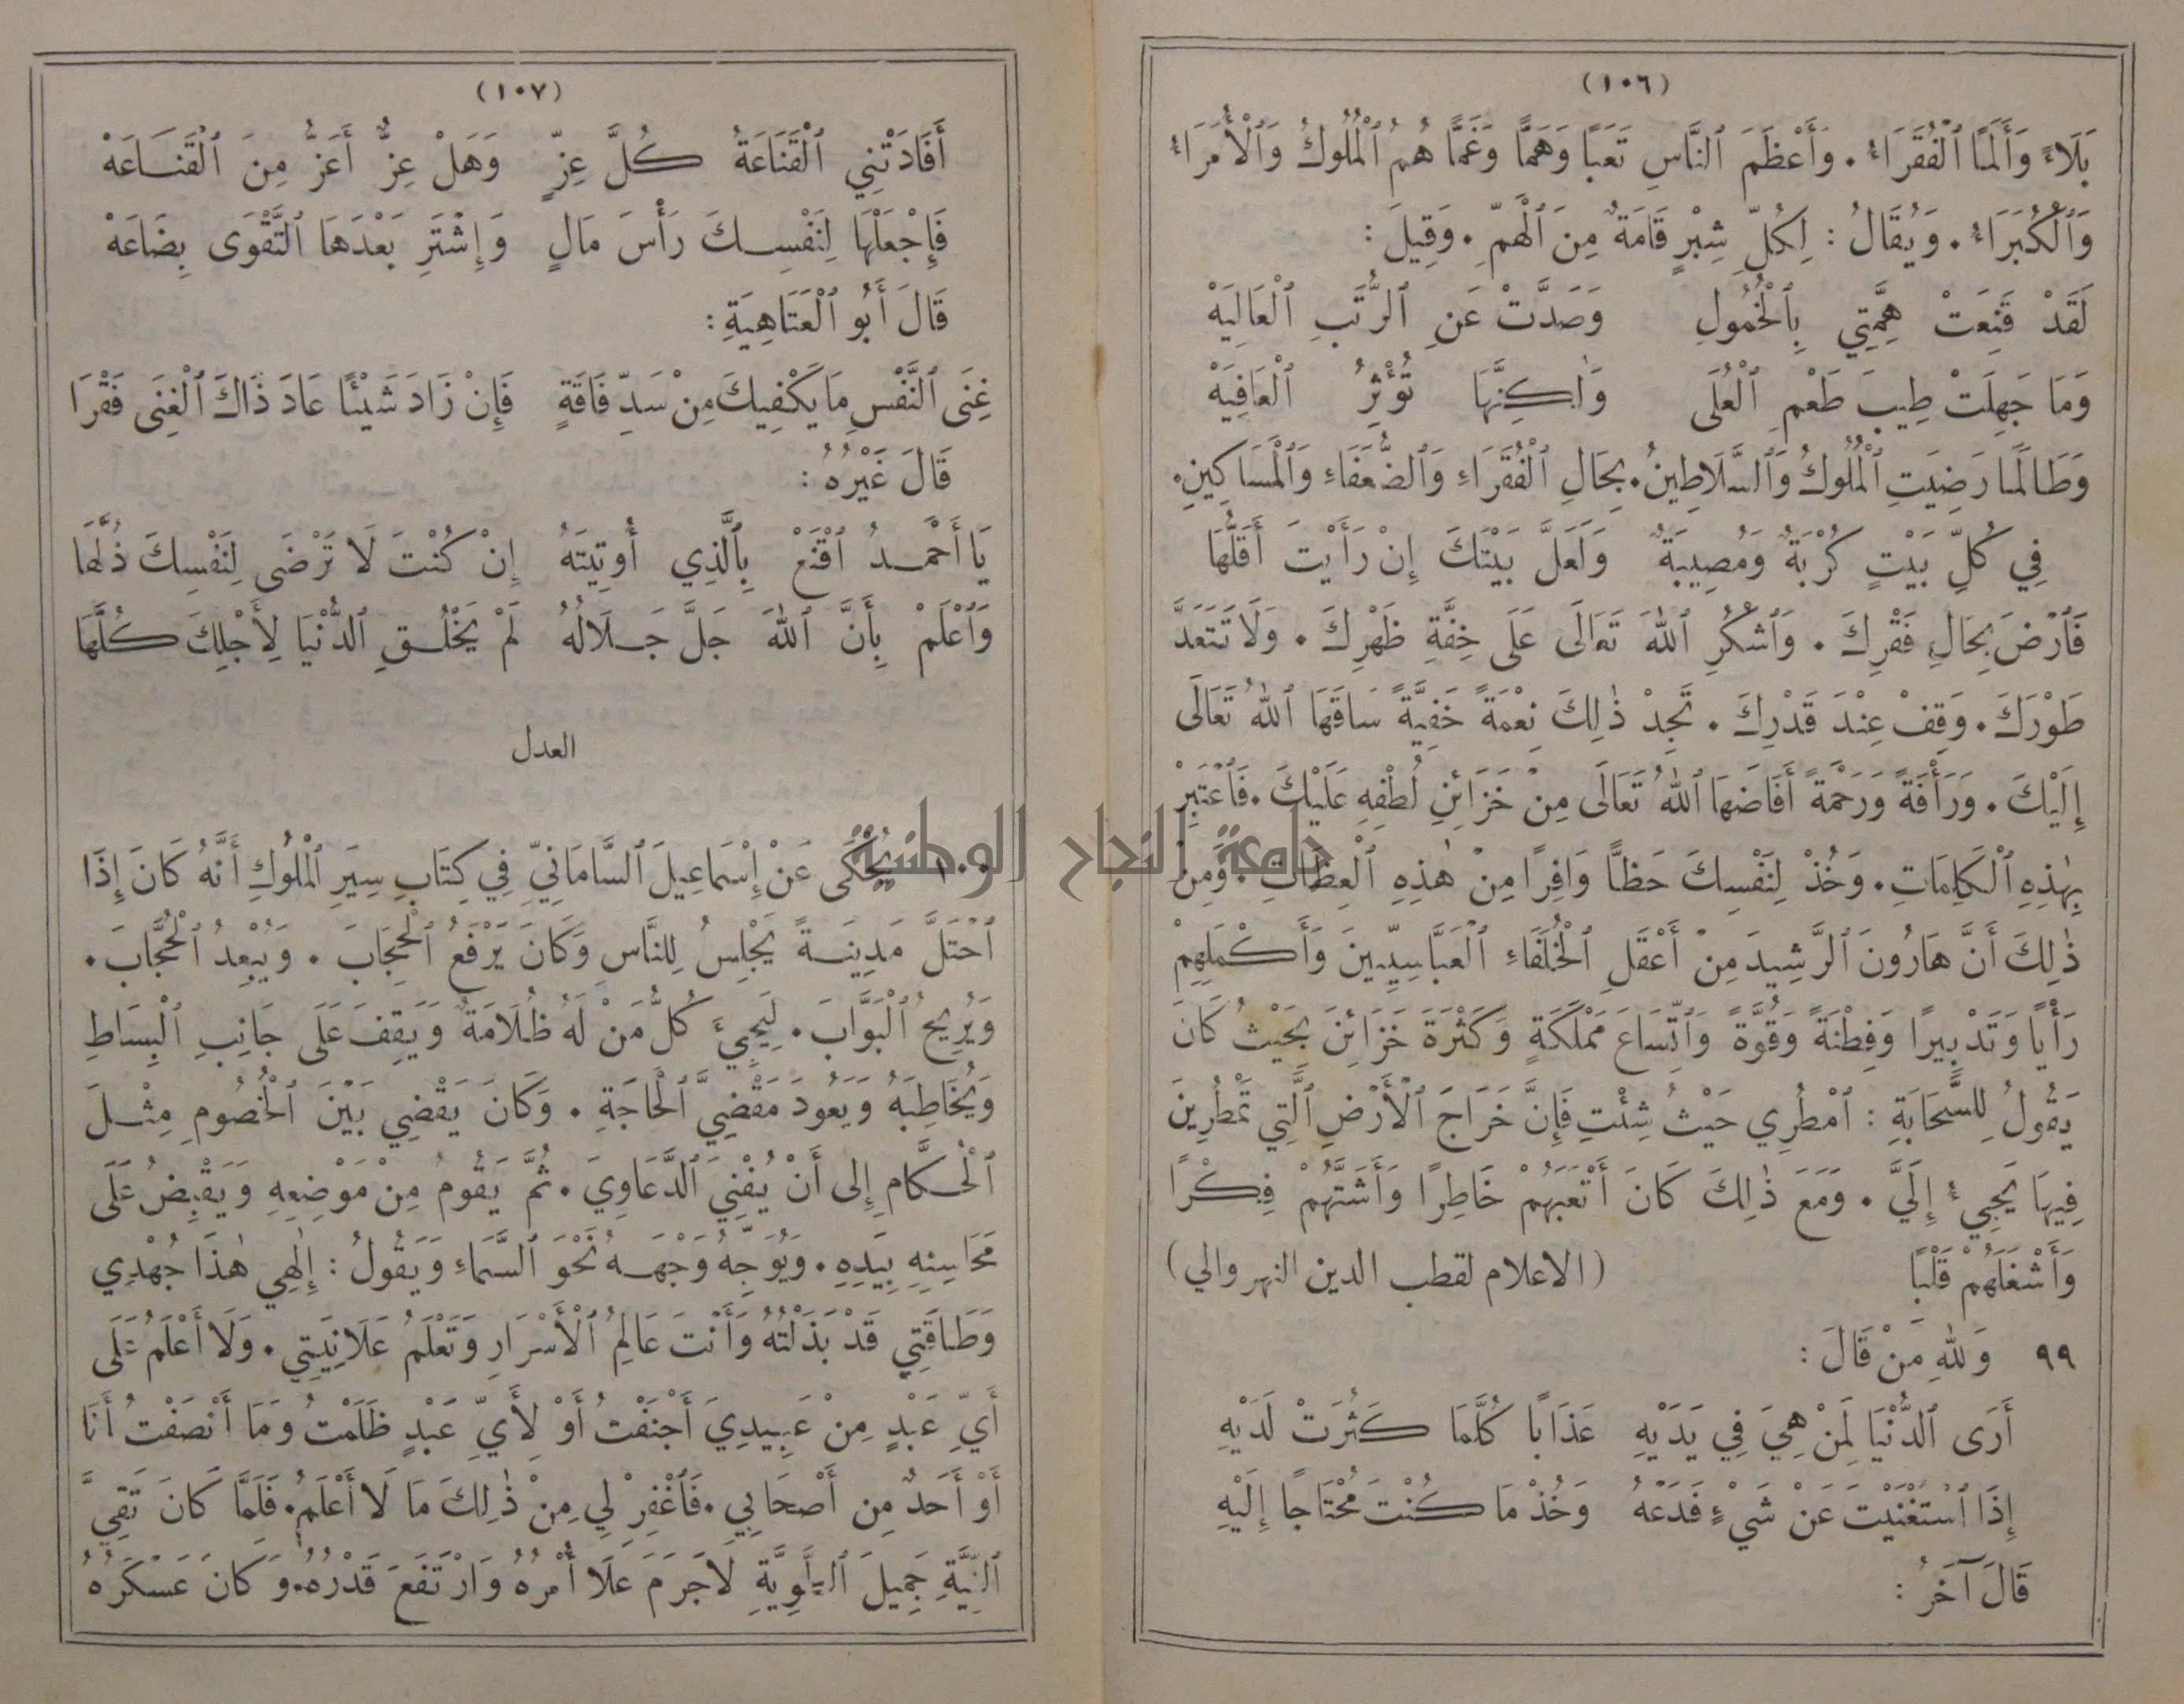 (١٠٦)
بَلَاءً وَأَلَمًا ٱلْفُقَرَاءُ. وَأَعْظَمَ ٱلنَّاسِ تَعَبًا وَهَمًّا وَغَمًّا هُمُ ٱلْمُلُوكُ وَٱلْأُمَرَاءُ
وَٱلْكُبَرَاءُ. وَيُقَالُ: لِكُلِّ شِبْرٍ قَامَةٌ مِنَ ٱلْهَمِّ. وَقِيلَ:
لَقَدْ قَنِعَتْ هِمَّتِي بِٱلْخُمُولِ وَصَدَّتْ عَنِ ٱلرُّتَبِ ٱلْعَالِيَهْ
وَمَا جَهِلَتْ طِيبَ طَعْمِ ٱلْعُلَى وَلٰكِنَّهَا تُؤْثِرُ ٱلْعَافِيَهْ
وَطَالَمَا رَضِيَتِ ٱلْمُلُوكُ وَٱلسَّلَاطِينُ. بِحَالِ ٱلْفُقَرَاءِ وَٱلضُّعَفَاءِ وَٱلْمَسَاكِينِ.
فِي كُلِّ بَيْتٍ كُرْبَةٌ وَمُصِيبَةٌ وَلَعَلَّ بَيْتَكَ إِنْ رَأَيْتَ أَقَلُّهَا
فَٱرْضَ بِحَالِ فَقْرِكَ. وَٱشْكُرِ ٱللهَ تَعَالَى عَلَى خِفَّةِ ظَهْرِكَ. وَلَا تَتَعَدَّ
طَوْرَكَ. وَقِفْ عِنْدَ قَدْرِكَ. تَجِدْ ذٰلِكَ نِعْمَةً خَفِيَّةً سَاقَهَا ٱللهُ تَعَالَى
إِلَيْكَ. وَرَأْفَةً وَرَحْمَةً أَفَاضَهَا ٱللهُ تَعَالَى مِنْ خَزَائِنِ لُطْفِهِ عَلَيْكَ. فَٱعْتَبِرْ
بِهٰذِهِ ٱلْكَلِمَاتِ. وَخُذْ لِنَفْسِكَ حَظًّا وَافِرًا مِنْ هٰذِهِ ٱلْعِظَاتِ. وَمِنْ
ذٰلِكَ أَنَّ هَارُونَ ٱلرَّشِيدَ مِنْ أَعْقَلِ ٱلْخُلَفَاءِ ٱلْعَبَّاسِيِّينَ وَأَكْمَلِهِمْ
رَأْيًا وَتَدْبِيرًا وَفِطْنَةً وَقُوَّةً وَٱتِّسَاعَ مَمْلَكَةٍ وَكَثْرَةَ خَزَائِنَ بِحَيْثُ كَانَ
يَقُولُ لِلسَّحَابَةِ: ٱمْطُرِي حَيْثُ شِئْتِ فَإِنَّ خَرَاجَ ٱلْأَرْضِ ٱلَّتِي تَمْطُرِينَ
فِيهَا يَجِيءُ إِلَيَّ. وَمَعَ ذٰلِكَ كَانَ أَتْعَبَهُمْ خَاطِرًا وَأَشَتَّهُمْ فِكْرًا
وَأَشْغَلَهُمْ قَلْبًا (الاعلام لقطب الدين النهروالي)
٩٩ وَللهِ مَنْ قَالَ:
أَرَى ٱلدُّنْيَا لِمَنْ هِيَ فِي يَدَيْهِ عَذَابًا كُلَّمَا كَثُرَتْ لَدَيْهِ
إِذَا ٱسْتَغْنَيْتَ عَنْ شَيْءٍ فَدَعْهُ وَخُذْ مَا كُنْتَ مُحْتَاجًا إِلَيْهِ
قَالَ آخَرُ:
(١٠٧)
أَفَادَتْنِي ٱلْقَنَاعَةُ كُلَّ عِزٍّ وَهَلْ عِزٌّ أَعَزُّ مِنَ ٱلْقَنَاعَهْ
فَإِجْعَلْهَا لِنَفْسِكَ رَأْسَ مَالٍ وَإِشْتَرِ بَعْدَهَا ٱلتَّقْوَى بِضَاعَهْ
قَالَ أَبُو ٱلْعَتَاهِيَةِ:
غِنَى ٱلنَّفْسِ مَا يَكْفِيكَ مِنْ سَدِّ فَاقَةٍ فَإِنْ زَادَ شَيْئًا عَادَ ذَاكَ ٱلْغِنَى فَقْرَا
قَالَ غَيْرُهُ:
يَا أَحْمَدُ ٱقْنَعْ بِٱلَّذِي أُوتِيتَهُ إِنْ كُنْتَ لَا تَرْضَى لِنَفْسِكَ ذُلَّهَا
وَٱعْلَمْ بِأَنَّ ٱللهَ جَلَّ جَلَالُهُ لَمْ يَخْلُقِ ٱلدُّنْيَا لِأَجْلِكَ كُلَّهَا
العدل
١٠٠ يُحْكَى عَنْ إِسْمَاعِيلَ ٱلسَّامَانِيِّ فِي كِتَابِ سِيَرِ ٱلْمُلُوكِ أَنَّهُ كَانَ إِذَا
ٱحْتَلَّ مَدِينَةً يَجْلِسُ لِلنَّاسِ وَكَانَ يَرْفَعُ ٱلْحِجَابَ. وَيُبْعِدُ ٱلْحُجَّابَ.
وَيُرِيحُ ٱلْبَوَّابَ. لِيَجِيءَ كُلُّ مَنْ لَهُ ظُلَامَةٌ وَيَقِفَ عَلَى جَانِبِ ٱلْبِسَاطِ
وَيُخَاطِبَهُ وَيَعُودَ مَقْضِيَّ ٱلْحَاجَةِ. وَكَانَ يَقْضِي بَيْنَ ٱلْخُصُومِ مِثْلَ
ٱلْحُكَّامِ إِلَى أَنْ يُفْنِيَ ٱلدَّعَاوِيَ. ثُمَّ يَقُومُ مِنْ مَوْضِعِهِ وَيَقْبِضُ عَلَى
مَحَاسِنِهِ بِيَدِهِ. وَيُوَجِّهُ وَجْهَهُ نَحْوَ ٱلسَّمَاءِ وَيَقُولُ: إِلٰهِي هٰذَا جُهْدِي
وَطَاقَتِي قَدْ بَذَلْتُهُ وَأَنْتَ عَالِمُ ٱلْأَسْرَارِ وَتَعْلَمُ عَلَانِيَتِي. وَلَا أَعْلَمُ عَلَى
أَيِّ عَبْدٍ مِنْ عَبِيدِيَ أَجْنَفْتُ أَوْ لِأَيِّ عَبْدٍ ظَلَمْتُ وَمَا أَنْصَفْتُ أَنَا
أَوْ أَحَدٌ مِن أَصْحَابِي. فَٱغْفِرْ لِي مِنْ ذٰلِكَ مَا لَا أَعْلَمُ. فَلَمَّا كَانَ نَقِيَّ
ٱلنِّيَّةِ جَمِيلَ ٱلطَّوِيَّةِ لَاجَرَمَ عَلَا أَمْرُهُ وَارْتَفَعَ قَدْرُهُ. وَكَانَ عَسْكَرُهُ
جامعة النجاح الوطنية